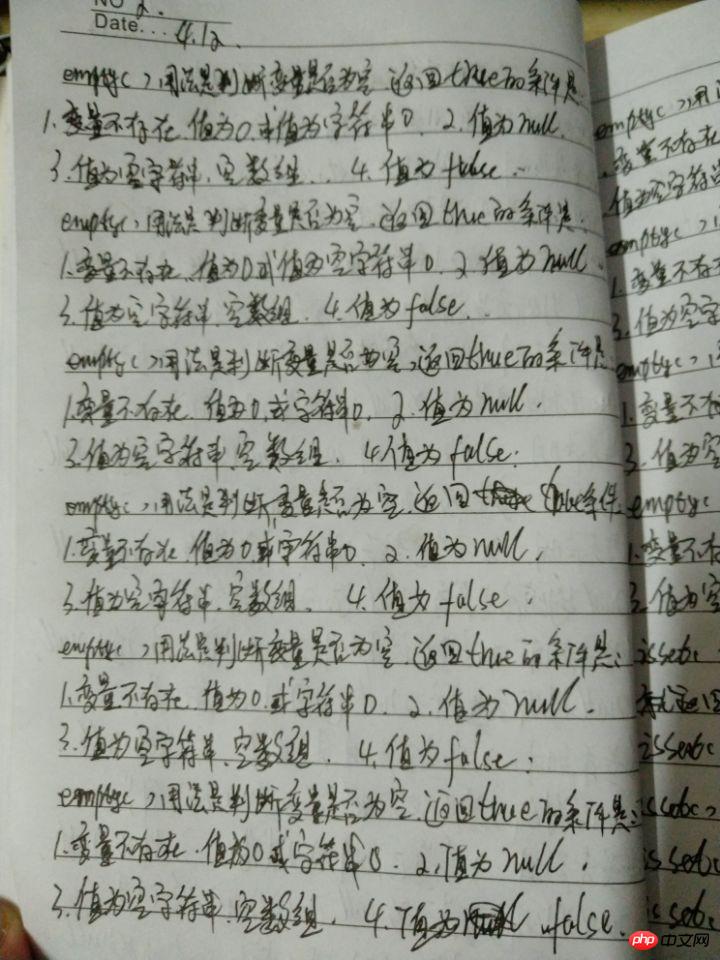 NO 2.
Date... 4.12.
empty( )用法是判断变量是否为空,返回true的条件是
1.变量不存在.值为0.或值为字符串0. 2.值为null.
3.值为空字符串.空数组... 4.值为false.
empty( )用法是判断变量是否为空.返回true的条件是:
1.变量不存在.值为0或值为空字符串0. 2.值为null.
3.值为空字符串.空数组. 4.值为false..
empty( )用法是判断变量是否为空,返回true的条件是:
1.变量不存在.值为0.或字符串0. 2.值为null.
3.值为空字符串.空数组. 4.值为false.
empty( )用法是判断变量是否为空.返回true条件.
1.变量不存在.值为0或字符串0. 2.值为null.
3.值为空字符串.空数组. 4.值为false.
empty( )用法是判断变量是否为空.返回true的条件是:
1.变量不存在.值为0.或字符串0. 2.值为null.
3.值为空字符串.空数组. 4.值为false.
empty( )用法是判断变量是否为空.返回true的条件是:
1.变量不存在.值为0或字符串0. 2.值为null.
3.值为空字符串.空数组. 4.值为 false.
empty( )用
变量不存
值为空字符串
empty( )用
1.变量不存在
3.值为空字
empty( )用
1.变量不存
3.值为空
empty(
1.变量不存
3.值为空
isset(
isset(
isset( )
isset(
isset(
php 中文网